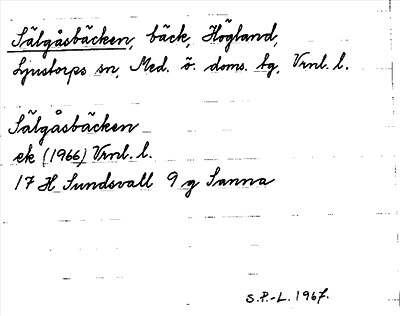 Sälgåsbäcken, bäck, Högland,
Ljustorps sn, Med. ö. doms. bg, Vrnl. l.
Sälgåsbäcken
ek (1966) Vrnl. l.
17 H Sundsvall 9 g Sanna
S.P.-L. 1967.